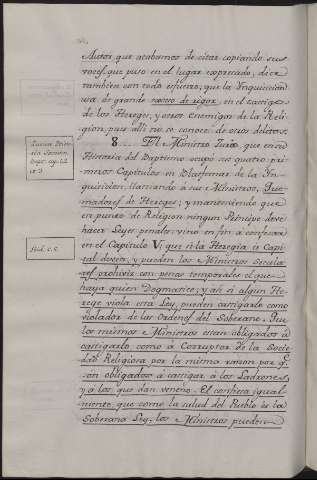 Autor, que acabamos de citar copiando sus
voces, que puso en el lugar expresado, decia
tambien con todo esfuerzo, que la Ynquisicion
usa de grande exceso de rigor, en el castigo
de los Hereges, y otros enemigos de la Reli-
gion, pues alli no se conoce de otros delitos.
8... El Ministro Jurio, que en su
Historia del Baptismo ocupó sus quatro pri-
meros Capitulos en Blasfemar de la Yn-
quisicion, llamando à sus Ministros, Que-
madores de Hereges; y manteniendo que
en punto de Religion ningun Principe deve
hacer Leyes penales; vino en fin à confesar
en el Capitulo VI que si la Heregia es Capi-
tal deven, y pueden los Ministros Secula-
res prohivir con penas temporales el que
haya quien Dogmatice; y asi si algun He-
rege viola esta Ley, pueden castigarlo como
violador de las Ordenes del Soberano. Que
los mismos Ministros estan obligados à
castigarlo como à Corruptor de la Socie-
dad Religiosa por la misma razon por q.e
son obligados à castigar à los Ladrones,
y à los que dan veneno. El confiesa igual-
mente, que como la salud del Pueblo es la
Soberana Ley, los Ministros pueden
Ibid. c. 6.